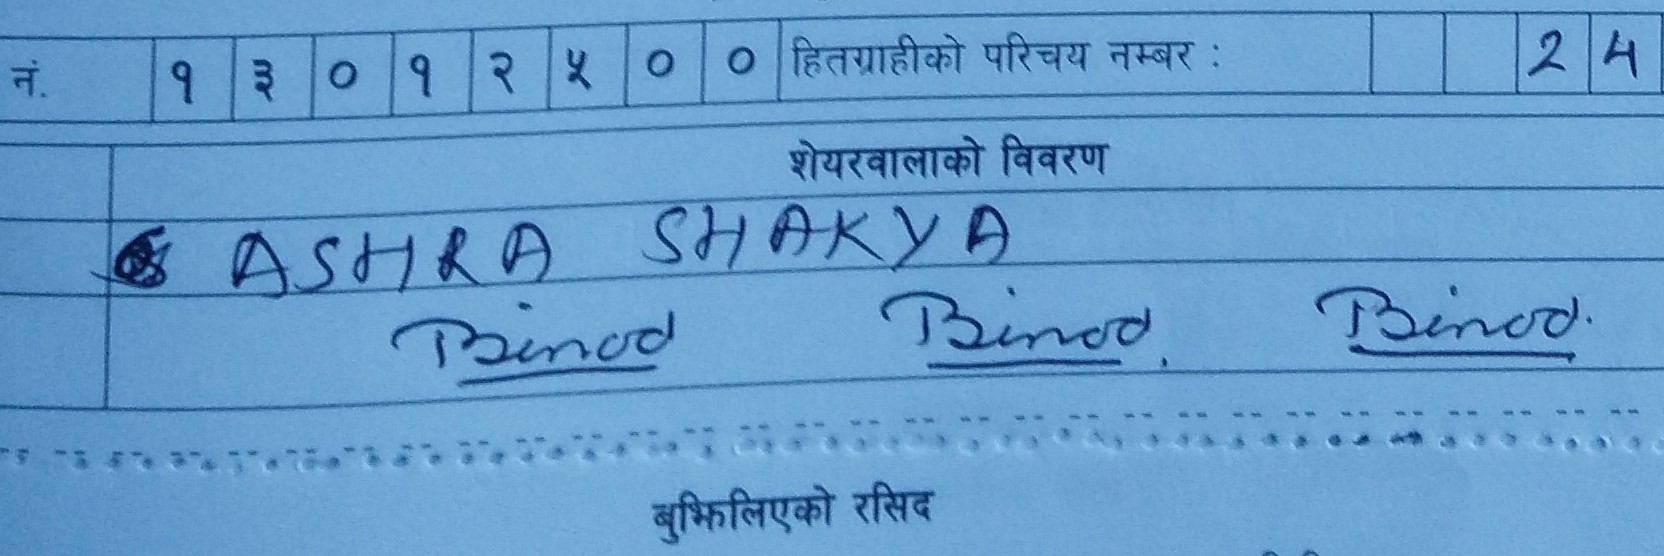 नं. १ ३ ० १ २ ५ ० ० हितग्राहीको परिचय नम्बर : 2 4
शेयरवालाको विवरण
ASHRA SHAKYA
Binod Binod. Binod.
बुझिलिएको रसिद